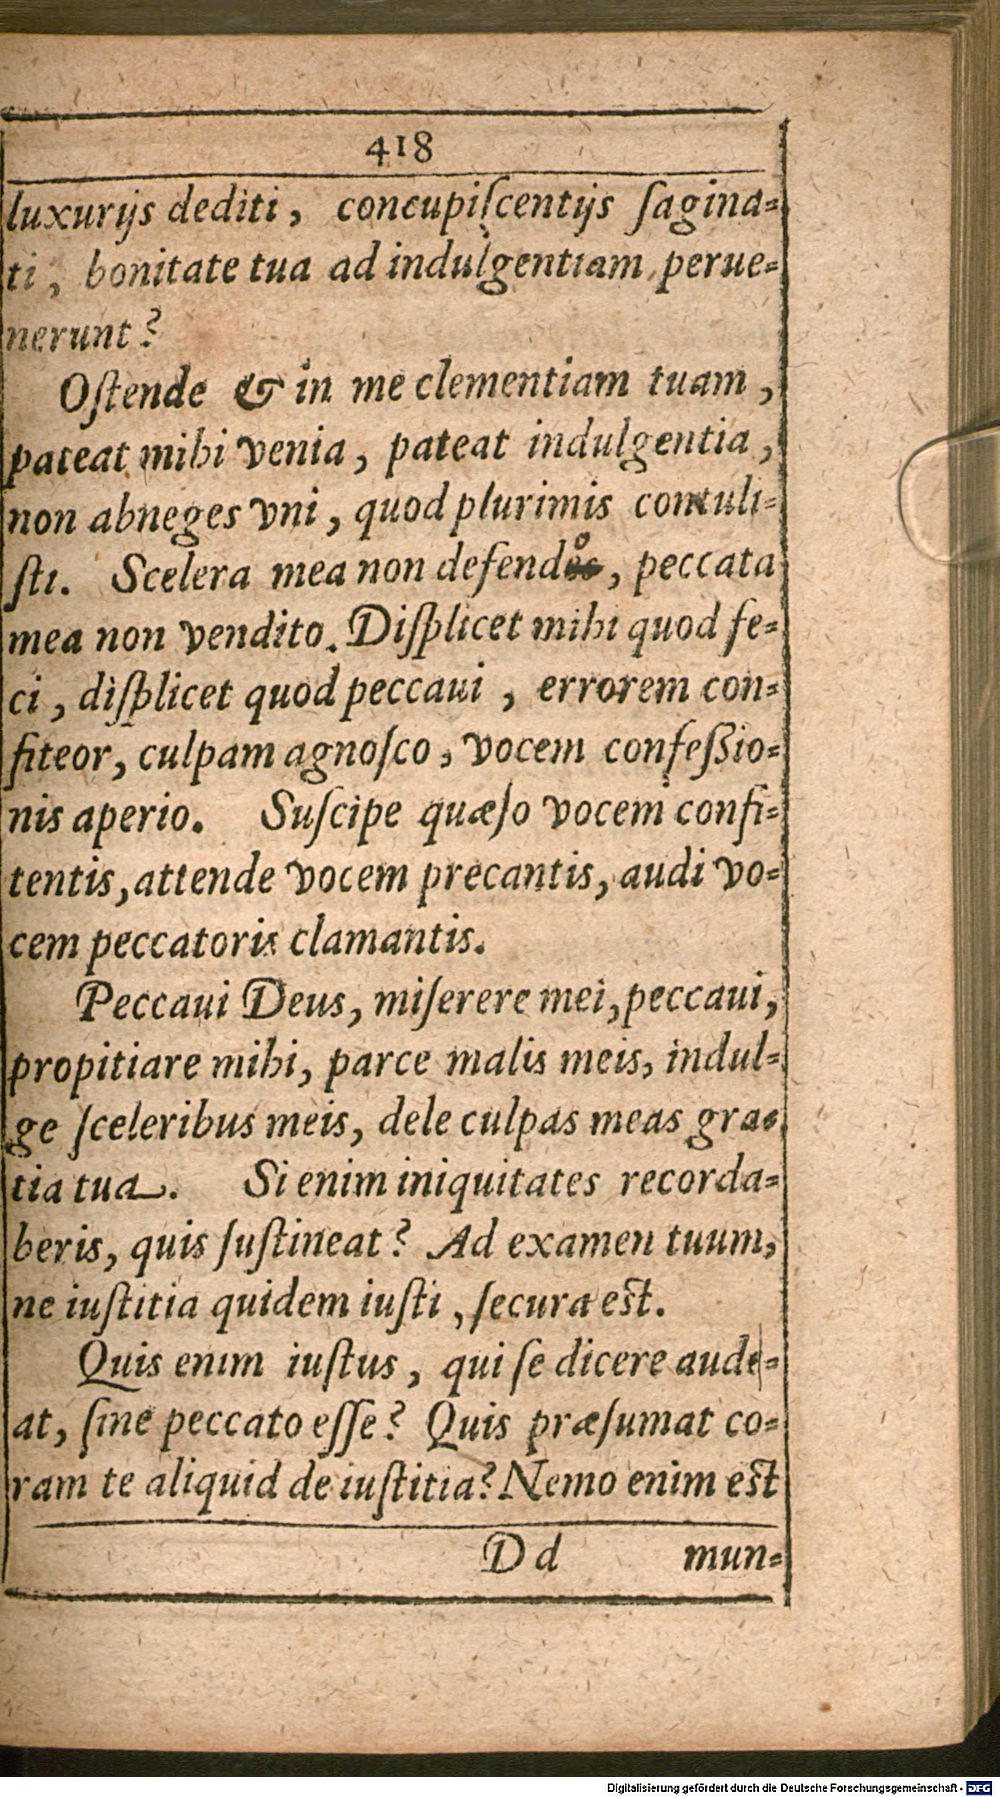 418
luxurijs dediti, concupiſcentijs ſagina-
ti, bonitate tua ad indulgentiam perue-
nerunt?
Oſtende & in me clementiam tuam,
pateat mihi venia, pateat indulgentia,
non abneges vni, quod plurimis contuli-
ſti. Scelera mea non defendo, peccata
mea non vendito. Diſplicet mihi quod fe-
ci, diſplicet quod peccaui, errorem con-
fiteor, culpam agnoſco, vocem confeßio-
nis aperio. Suſcipe quæſo vocem confi-
tentis, attende vocem precantis, audi vo-
cem peccatoris clamantis.
Peccaui Deus, miſerere mei, peccaui,
propitiare mihi, parce malis meis, indul-
ge ſceleribus meis, dele culpas meas gra-
tia tua. Si enim iniquitates recorda-
beris, quis ſuſtineat? Ad examen tuum,
ne iuſtitia quidem iuſti, ſecura eſt.
Quis enim iuſtus, qui ſe dicere aude-
at, ſine peccato eſſe? Quis præſumat co-
ram te aliquid de iuſtitia? Nemo enim eſt
D d mun-
Digitalisierung gefördert durch die Deutsche Forschungsgemeinschaft - DFG